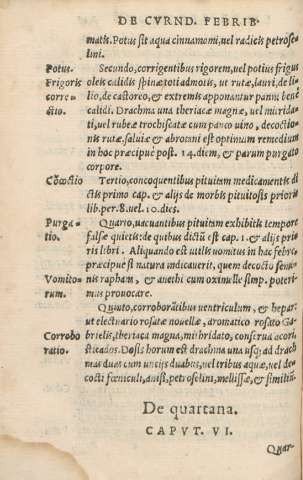 DE CVRND. FEBRIB.
matis. Potus sit aqua cinnamomi, uel radicis petrose-
lini.
Potus. Secundo, corrigentibus rigorem, uel potius frigus
Frigoris oleis calidis spinæ toti admotis, ut rutæ, lauri, de li-
corre- lio, de castoreo, & extremis apponantur panni bene
ctio. calidi. Drachma una theriacæ magnæ, uel mitrida-
ti, uel rubeæ trochiscatæ cum pauco uino, decoctio-
nis rutæ. saluiæ & abrotani est optimum remedium
in hoc præcipue post. 14. diem, & parum purgato
corpore.
Cõcoctio Tertio, concoquentibus pituitam medicamentis di
ctis primo cap. & alijs de morbis pituitosis prioris
lib. per. 8. uel. 10. dies.
Purga- Quarto, uacuantibus pituitam exhibitis tempore
tio. falsæ quietis: de quibus dictũ est cap. 1. & alijs prio
ris libri. Aliquando est utilis uomitus in hac febre,
præcipue si natura indicauerit, quem decocto semi-
Vomito- nis raphani, & anethi cum oximelle simp. poteri-
rium. mus prouocare.
Quinto, corroborãtibus uentriculum, & hepar
ut electuario rosatæ nouellæ, aromatico rosato Ga-
Corrobo brielis, theriaca magna, mitridato, conserua acori
ratio. sticados. Dosis horum est drachma una usq; ad drach
mas duas cum uncijs duabus, uel tribus aquæ, uel de
cocti fœniculi, anisi, petroselini, melissæ, & similiũ.
De quartana.
CAPVT. VI.
Quar-